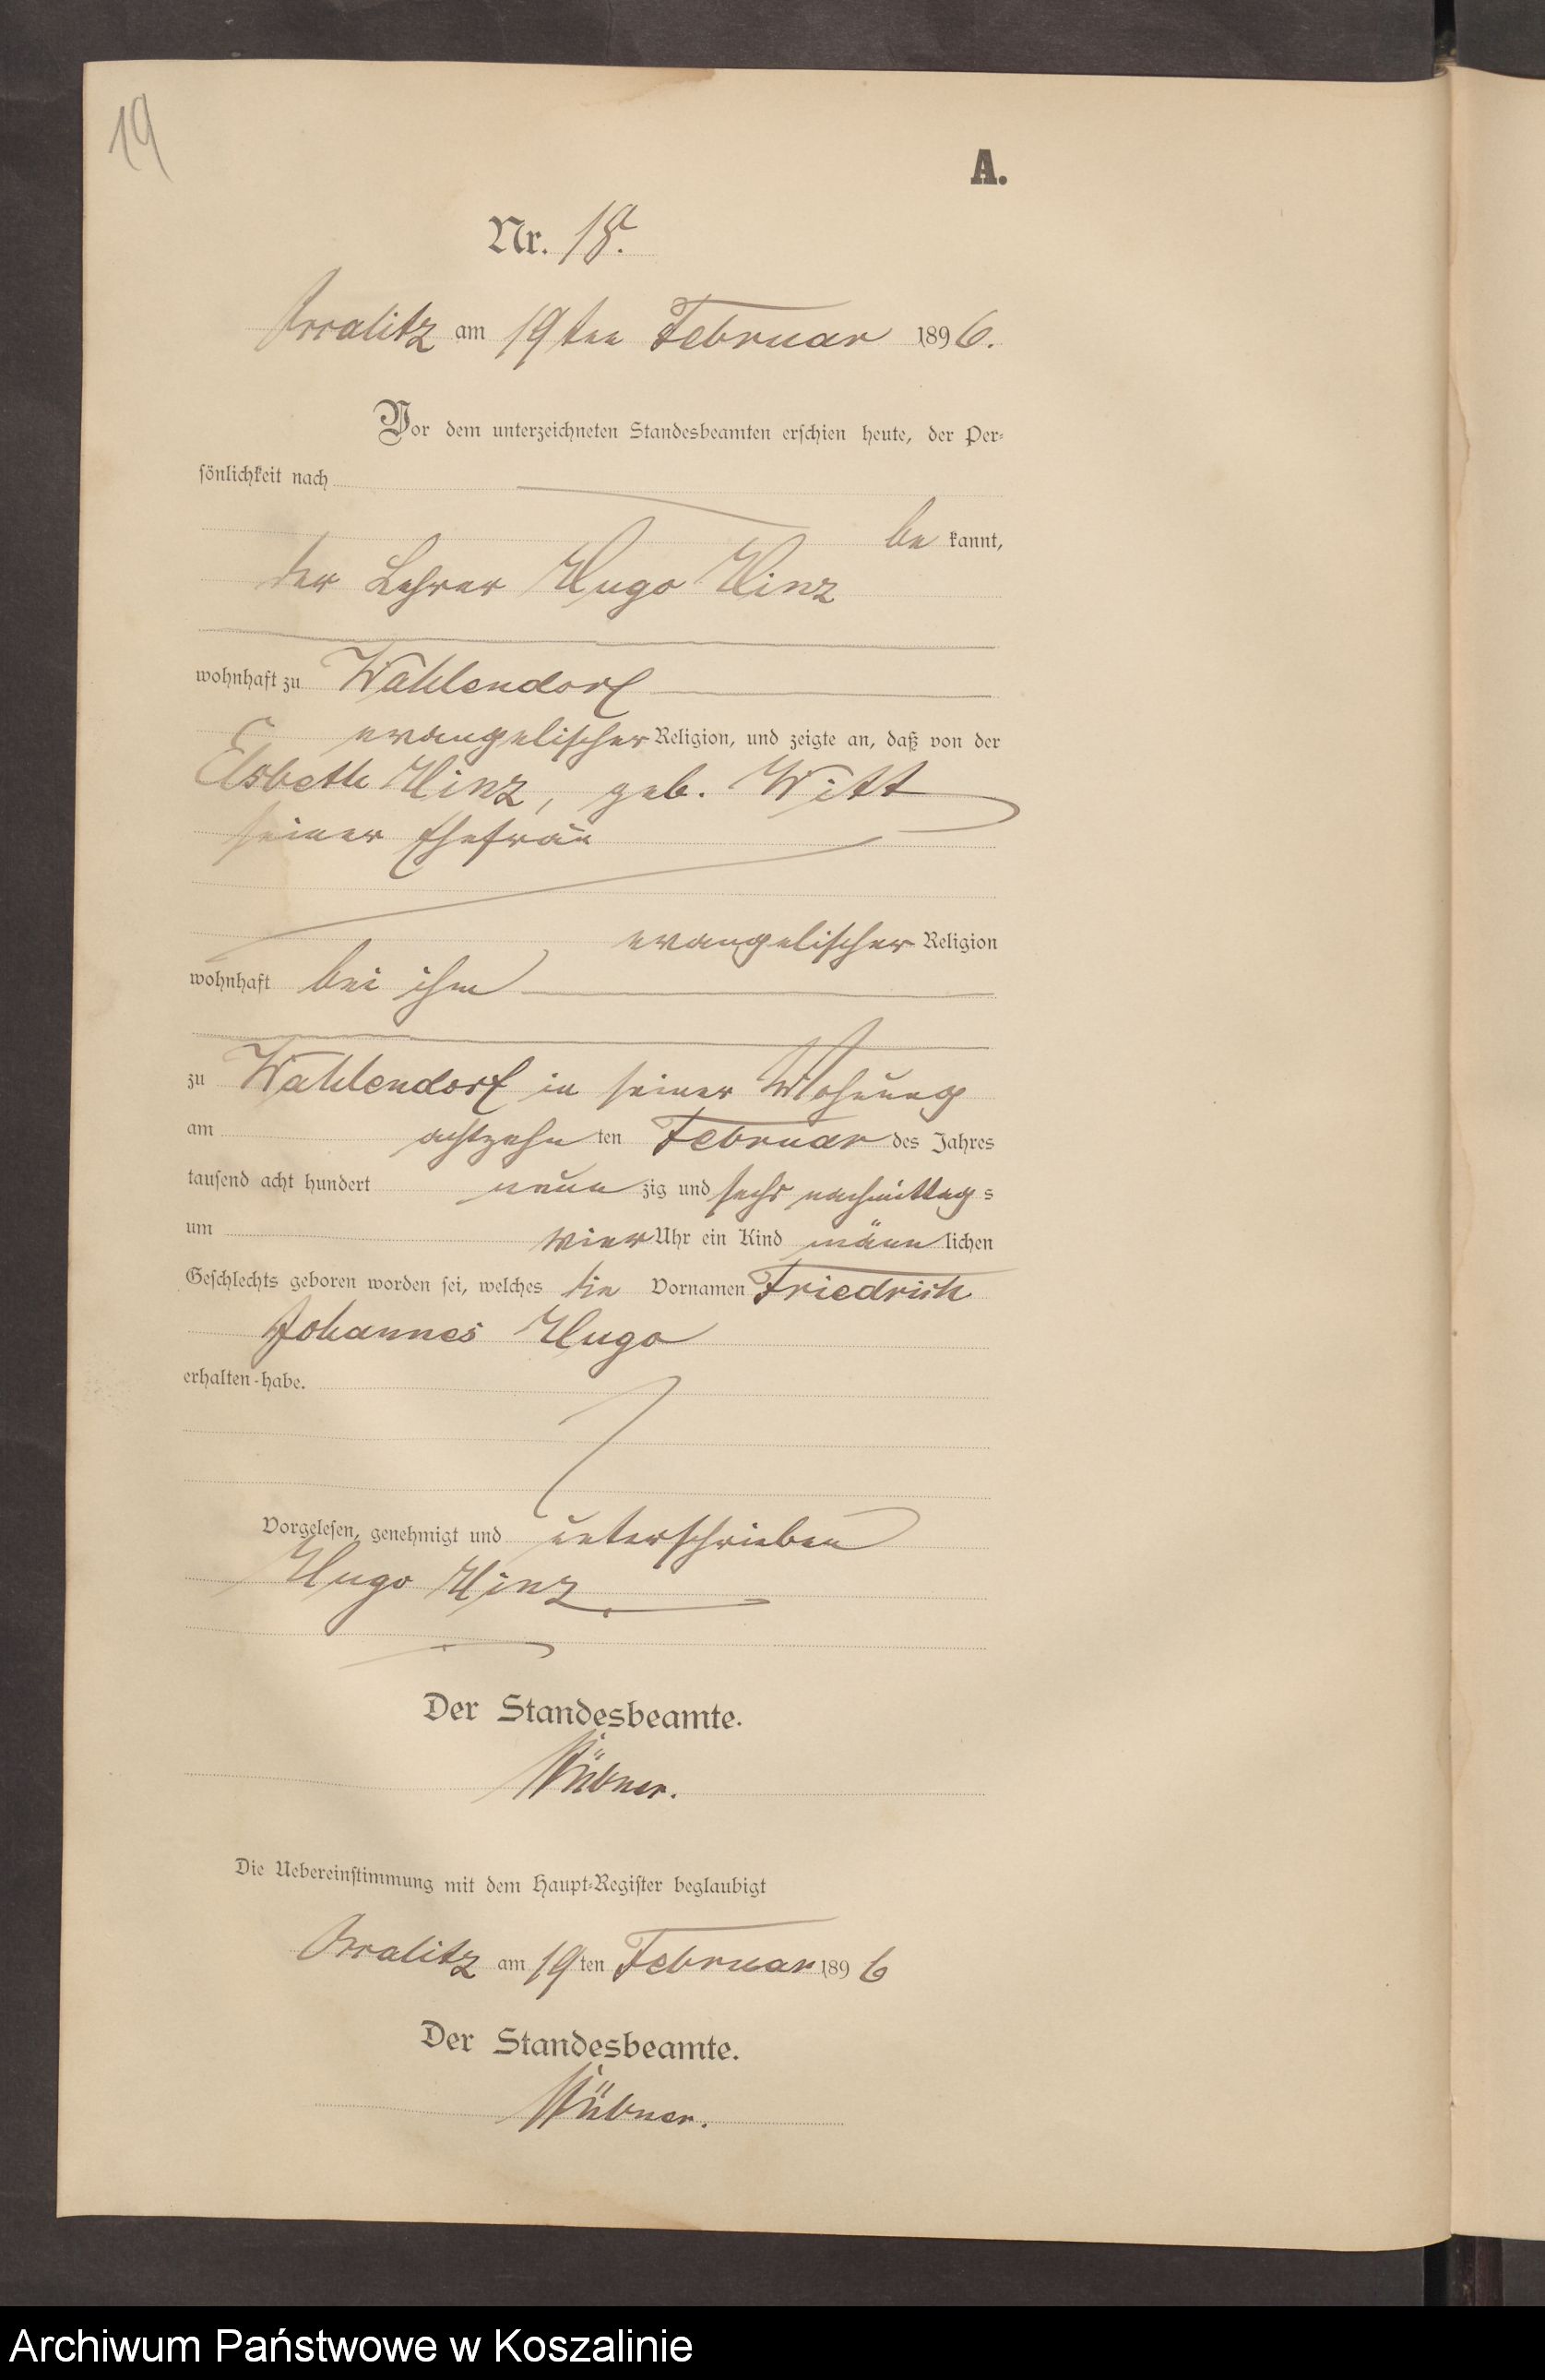 19
A.
Nr. 18.
am 19ten Februar 1896.
Vor dem unterzeichneten Standesbeamten erschien heute, der Per-
sönlichkeit nach
be kannt,
der Lehrer Hugo Hinz
wohnhaft zu Wahlendorf
evangelischer Religion, und zeigte an, daß von der
Elsbeth Hinz, geb. Witt
seiner Ehefrau
evangelischer Religion
wohnhaft bei ihm
zu Wahlendorf in seiner Wohnung
am achtzehn ten Februar des Jahres
tausend acht hundert neun zig und sechs nachmittag s
um vier Uhr ein Kind männ lichen
Geschlechts geboren worden sei, welches die Vornamen Friedrich
Johannes Hugo
erhalten habe.
Vorgelesen, genehmigt und unterschrieben
Hugo Hinz.
Der Standesbeamte.
Die Uebereinstimmung mit dem Haupt-Register beglaubigt
am 19ten Februar 1896
Der Standesbeamte.
Archiwum Państwowe w Koszalinie